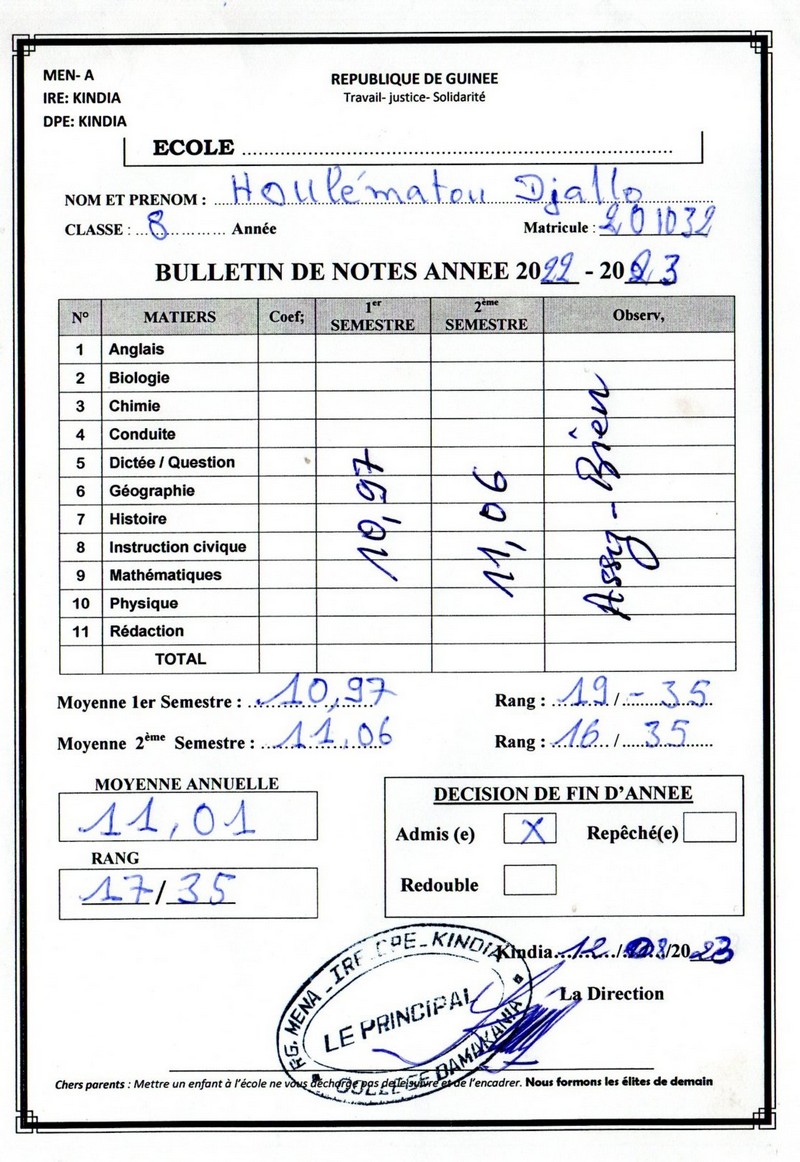 MEN- A
IRE: KINDIA
DPE: KINDIA
REPUBLIQUE DE GUINEE
Travail- justice- Solidarité
ECOLE ................................................................
NOM ET PRENOM : Houlématou Djallo
CLASSE : 8 Année
Matricule : 201032
BULLETIN DE NOTES ANNEE 2022 - 2023
N° MATIERS Coef; 1er SEMESTRE 2ème SEMESTRE Observ,
1 Anglais
2 Biologie
3 Chimie
4 Conduite
5 Dictée / Question
6 Géographie
7 Histoire
8 Instruction civique
9 Mathématiques
10 Physique
11 Rédaction
TOTAL
10,97
11,06
Assez-Bien
Moyenne 1er Semestre : 10,97 Rang : 19 / - 35
Moyenne 2ème Semestre : 11,06 Rang : 16 / 35
MOYENNE ANNUELLE
11,01
RANG
17/35
DECISION DE FIN D'ANNEE
Admis (e) X Repêché(e)
Redouble
Kindia 12 /08/2023
La Direction
RG. MENA - IRE - DPE - KINDIA
LE PRINCIPAL
COLLEGE DAMAKANIA
Chers parents : Mettre un enfant à l'école ne vous décharge pas de le suivre et de l'encadrer. Nous formons les élites de demain